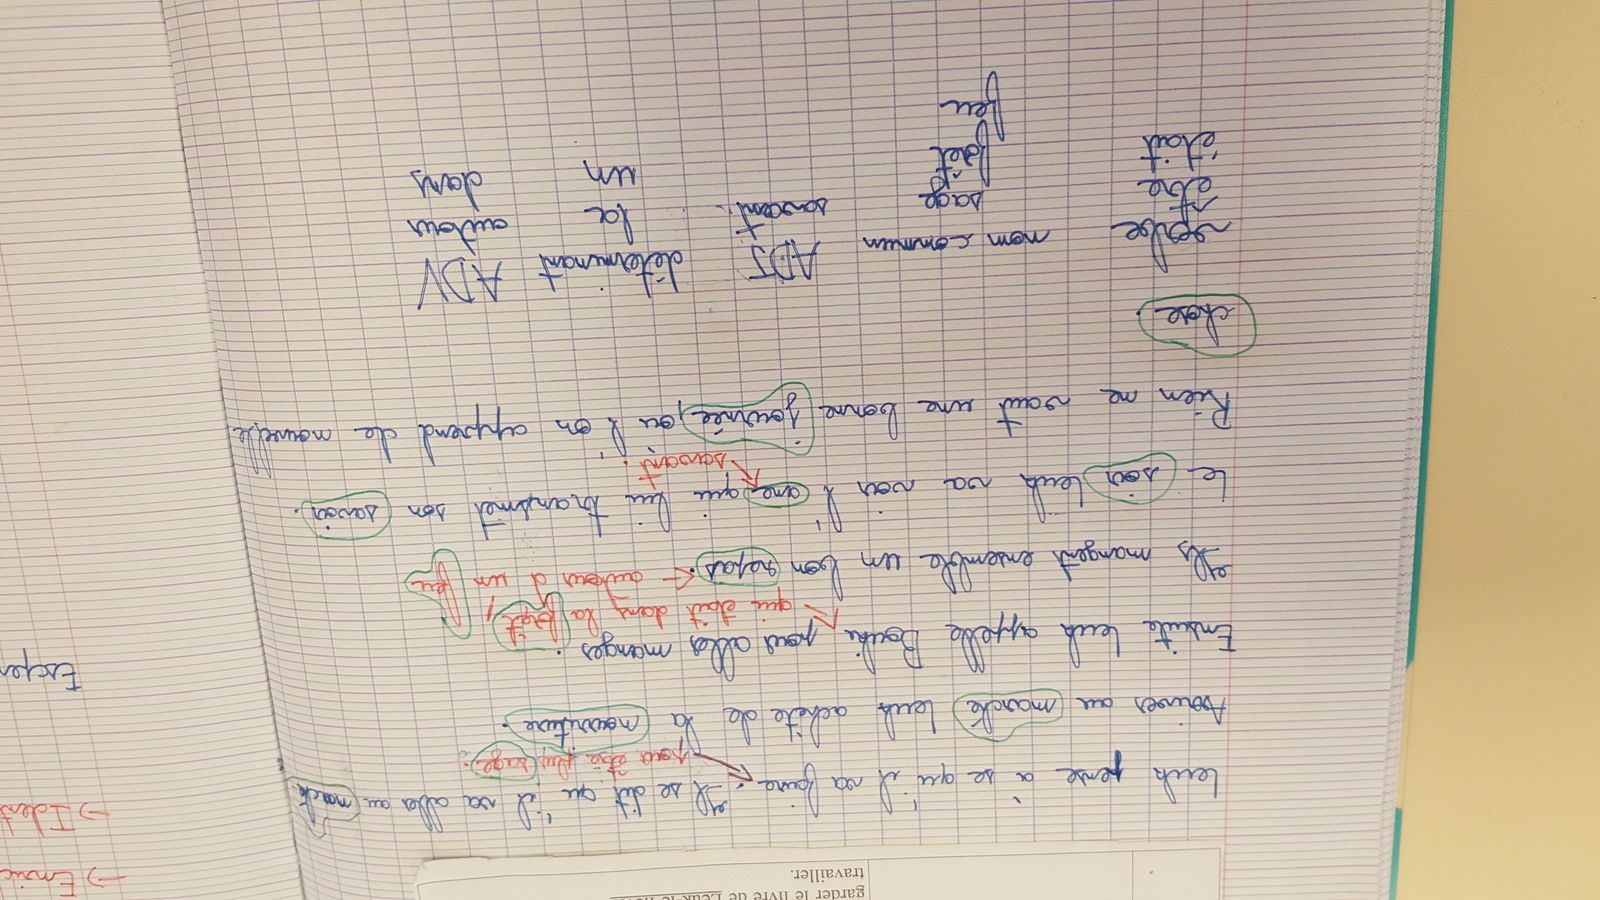 garder le livre de
travailler.
Leuk pense a se qu'il va faire. Il se dit qu'il va aller au march
pour être plus sage.
Arrives au marché Leuk achète de la nourriture.
Ensuite Leuk appelle Bouki pour aller manger.
qui était dans la forêt,
Ils mangent ensemble un bon repas. ← autour d'un feu
Le soir Leuk va voir l'ane qui lui transmet son savoir.
savant.
Rien ne vaut une bonne journée, ou l'on apprend de nouvelle
chose.
verbe nom commun ADJ déterminant ADV
être sage savant. la autour
était forêt un dans
feu
→ Enric
→ Ident